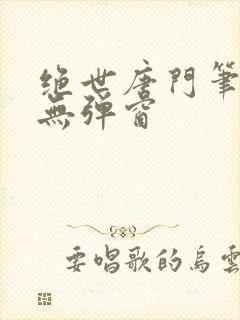 絶世唐門筆
無彈窗
要唱歌的烏雲